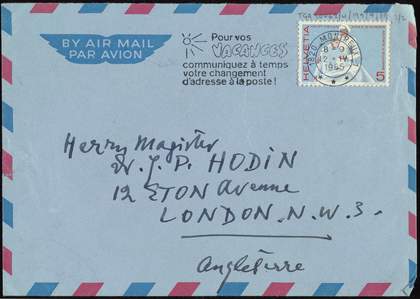 BY AIR MAIL
PAR AVION
Pour vos
VACANCES
communiquez à temps
votre changement
d'adresse à la poste!
1820 MONTREUX
1965
HELVETIA
5
Herry Magister
W. J. P. HODIN
12 ETON Avenue
LONDON. N.W. 3.
Angleterre